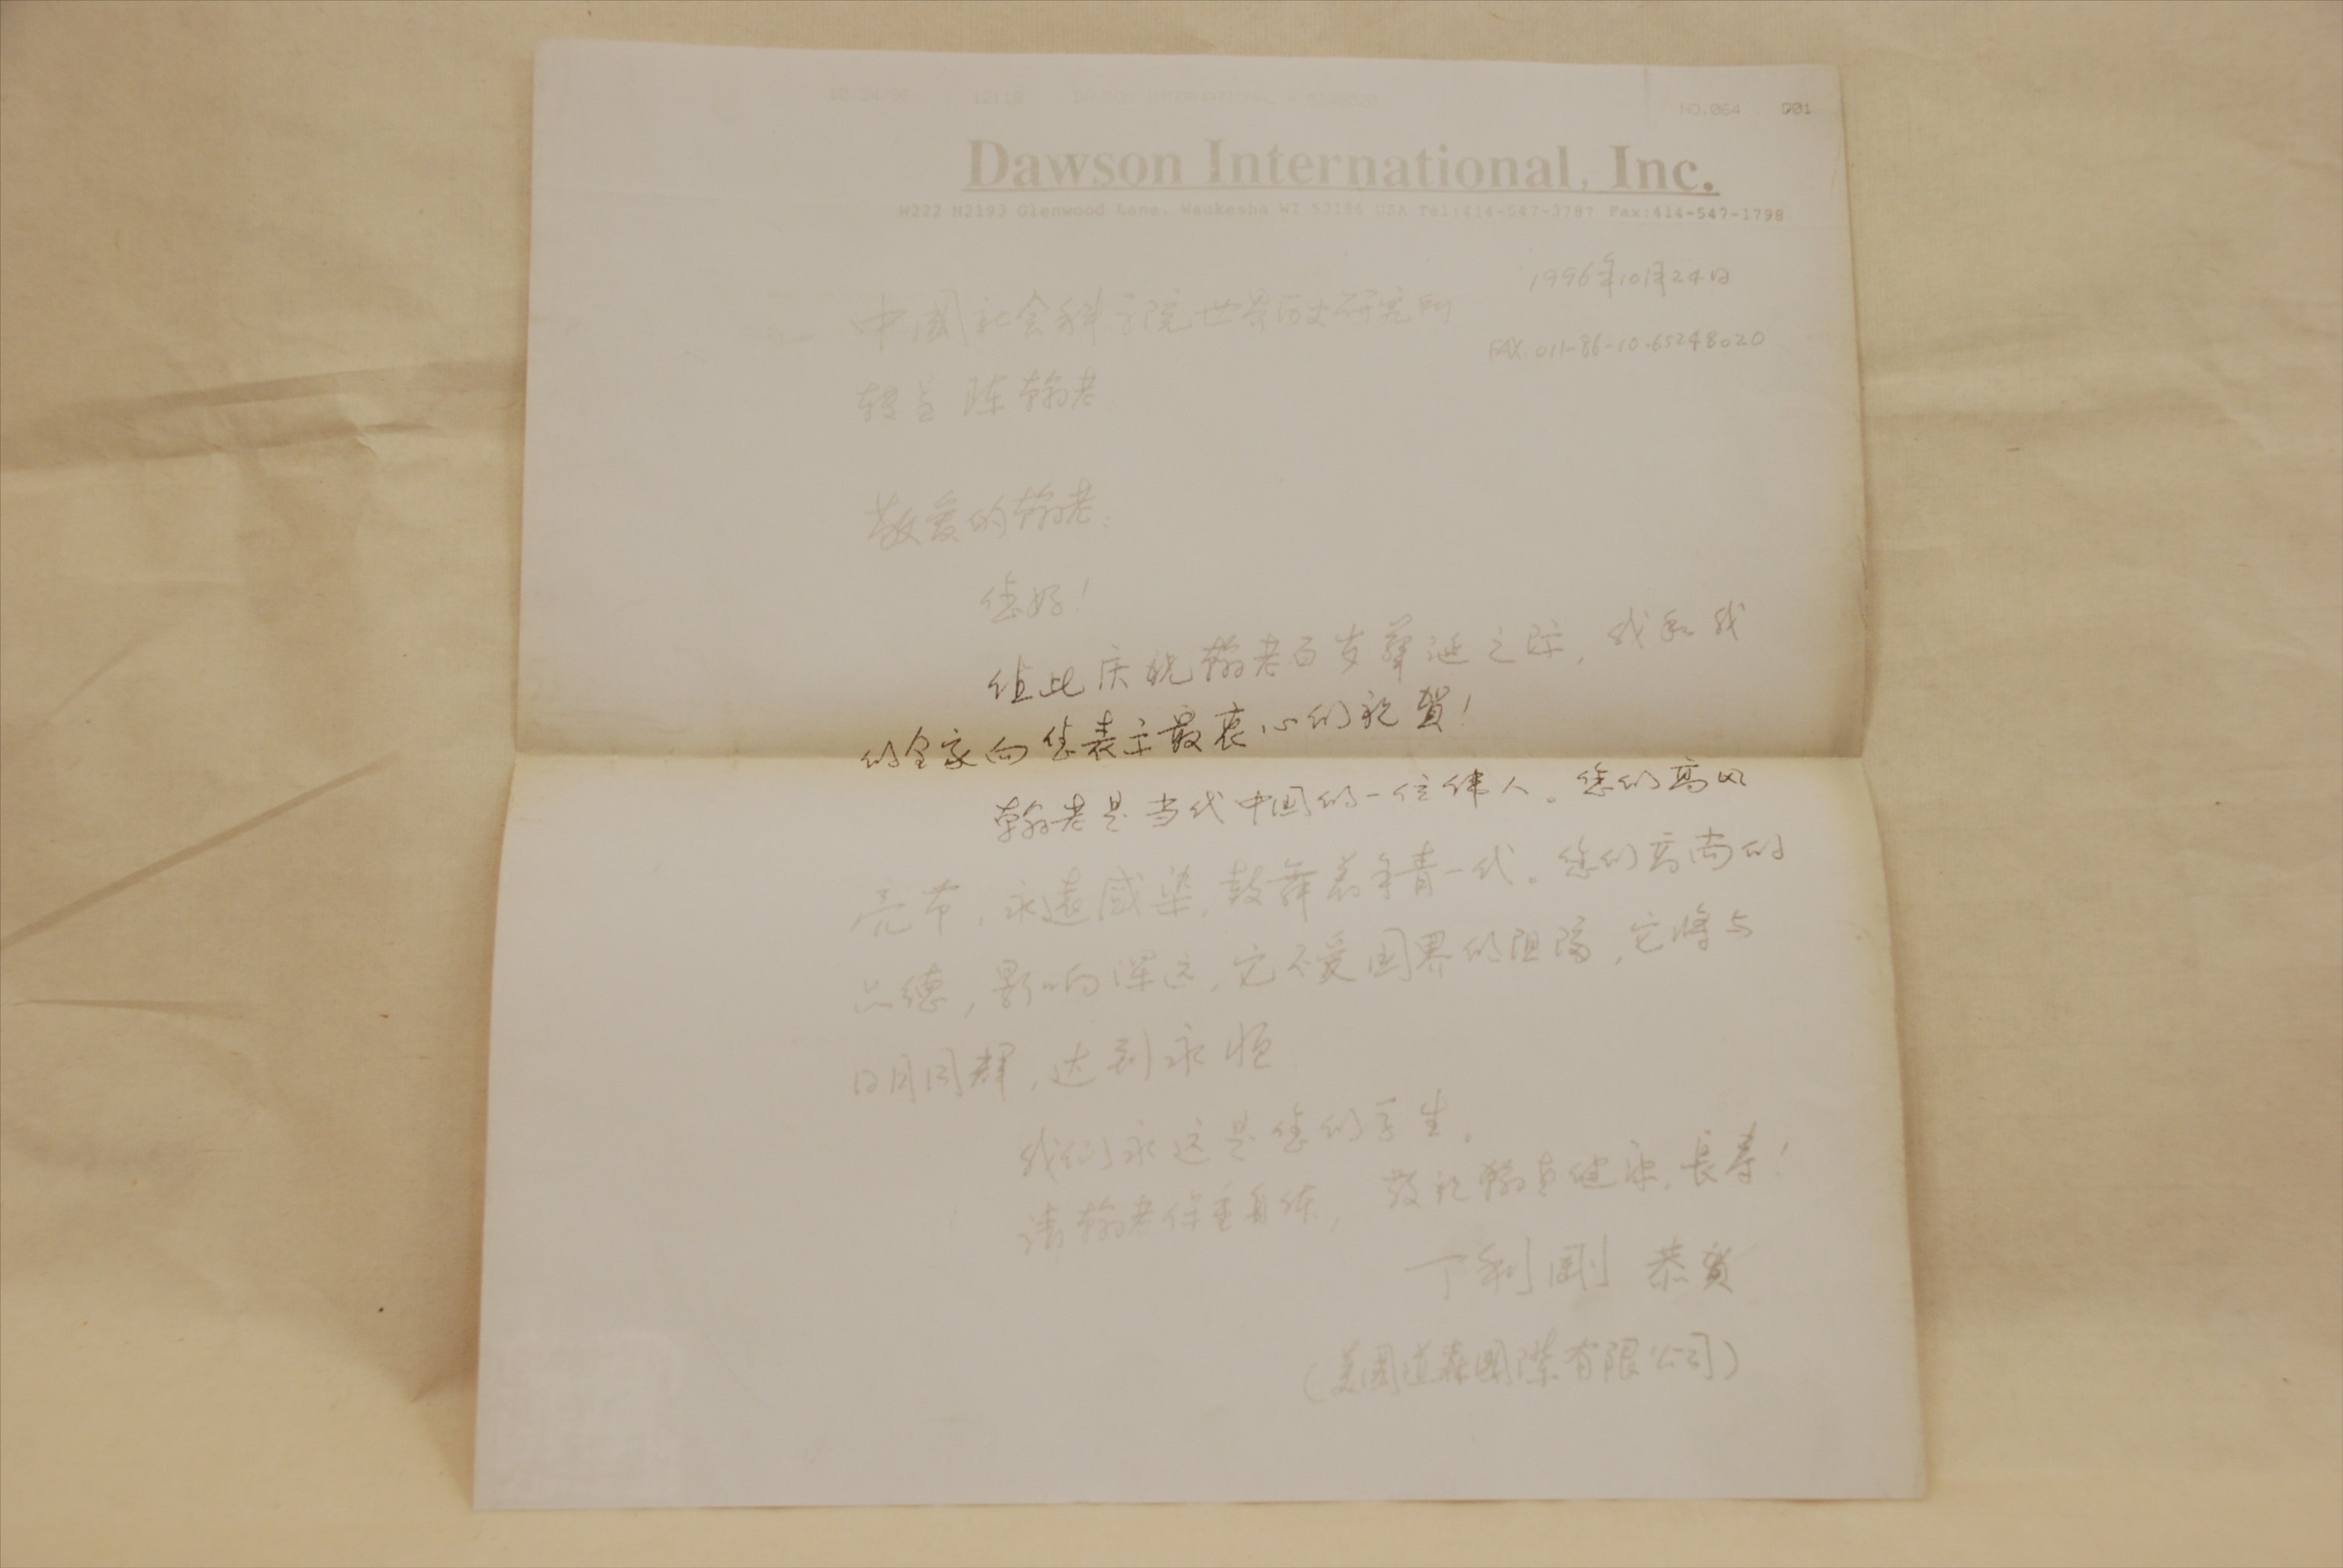 10/24/96 12:18 DAWSON INTERNATIONAL → 5248020 NO.064 D01
Dawson International, Inc.
W222 N2193 Glenwood Lane, Waukesha WI 53186 USA Tel:414-547-3787 Fax:414-547-1798
1996年10月24日
中國社会科学院世界历史研究所
FAX. 011-86-10-65248020
转呈 陈翰老
敬爱的翰老:
您好!
值此庆祝翰老百岁华诞之际, 我和我
的全家向您表示最衷心的祝賀!
翰老是当代中国的一位伟人。您的高风
亮节, 永远感染, 鼓舞着年青一代。您的高尚的
品德, 影响深远, 它不受国界的阻隔, 它将与
日月同辉, 达到永恒.
我们永远是您的学生。
请翰老保重身体, 敬祝翰老健康, 長寿!
丁利剛 恭賀
(美國道森國際有限公司)